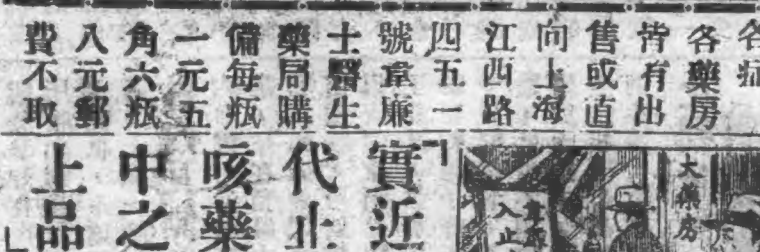 各症
各藥房
皆有出
售或直
向上海
江西路
四五一
號韋廉
士醫生
藥局購
備每瓶
一元五
角六瓶
八元郵
費不取
「實近
代止
咳藥
中之
上品」
大藥房
入止